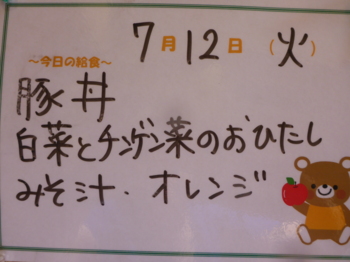 7月12日(火)
～今日の給食～
豚丼
白菜とチンゲン菜のおひたし
みそ汁・オレンジ